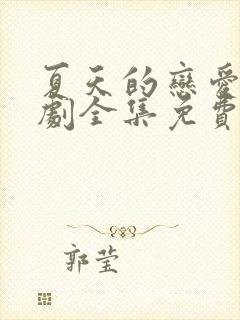 夏天的戀愛
劇全集免費
郭莹